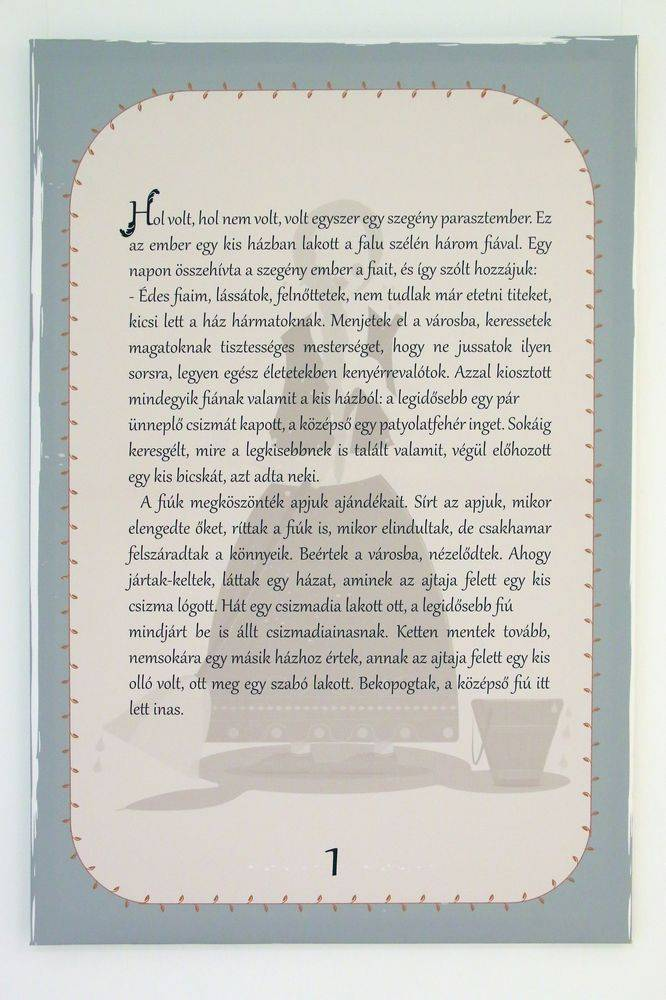 Hol volt, hol nem volt, volt egyszer egy szegény parasztember. Ez
az ember egy kis házban lakott a falu szélén három fiával. Egy
napon összehívta a szegény ember a fiait, és így szólt hozzájuk:
- Édes fiaim, lássátok, felnőttetek, nem tudlak már etetni titeket,
kicsi lett a ház hármatoknak. Menjetek el a városba, keressetek
magatoknak tisztességes mesterséget, hogy ne jussatok ilyen
sorsra, legyen egész életetekben kenyérrevalótok. Azzal kiosztott
mindegyik fiának valamit a kis házból: a legidősebb egy pár
ünneplő csizmát kapott, a középső egy patyolatfehér inget. Sokáig
keresgélt, mire a legkisebbnek is talált valamit, végül előhozott
egy kis bicskát, azt adta neki.
A fiúk megköszönték apjuk ajándékait. Sírt az apjuk, mikor
elengedte őket, ríttak a fiúk is, mikor elindultak, de csakhamar
felszáradtak a könnyeik. Beértek a városba, nézelődtek. Ahogy
jártak-keltek, láttak egy házat, aminek az ajtaja felett egy kis
csizma lógott. Hát egy csizmadia lakott ott, a legidősebb fiú
mindjárt be is állt csizmadiainasnak. Ketten mentek tovább,
nemsokára egy másik házhoz értek, annak az ajtaja felett egy kis
olló volt, ott meg egy szabó lakott. Bekopogtak, a középső fiú itt
lett inas.
1